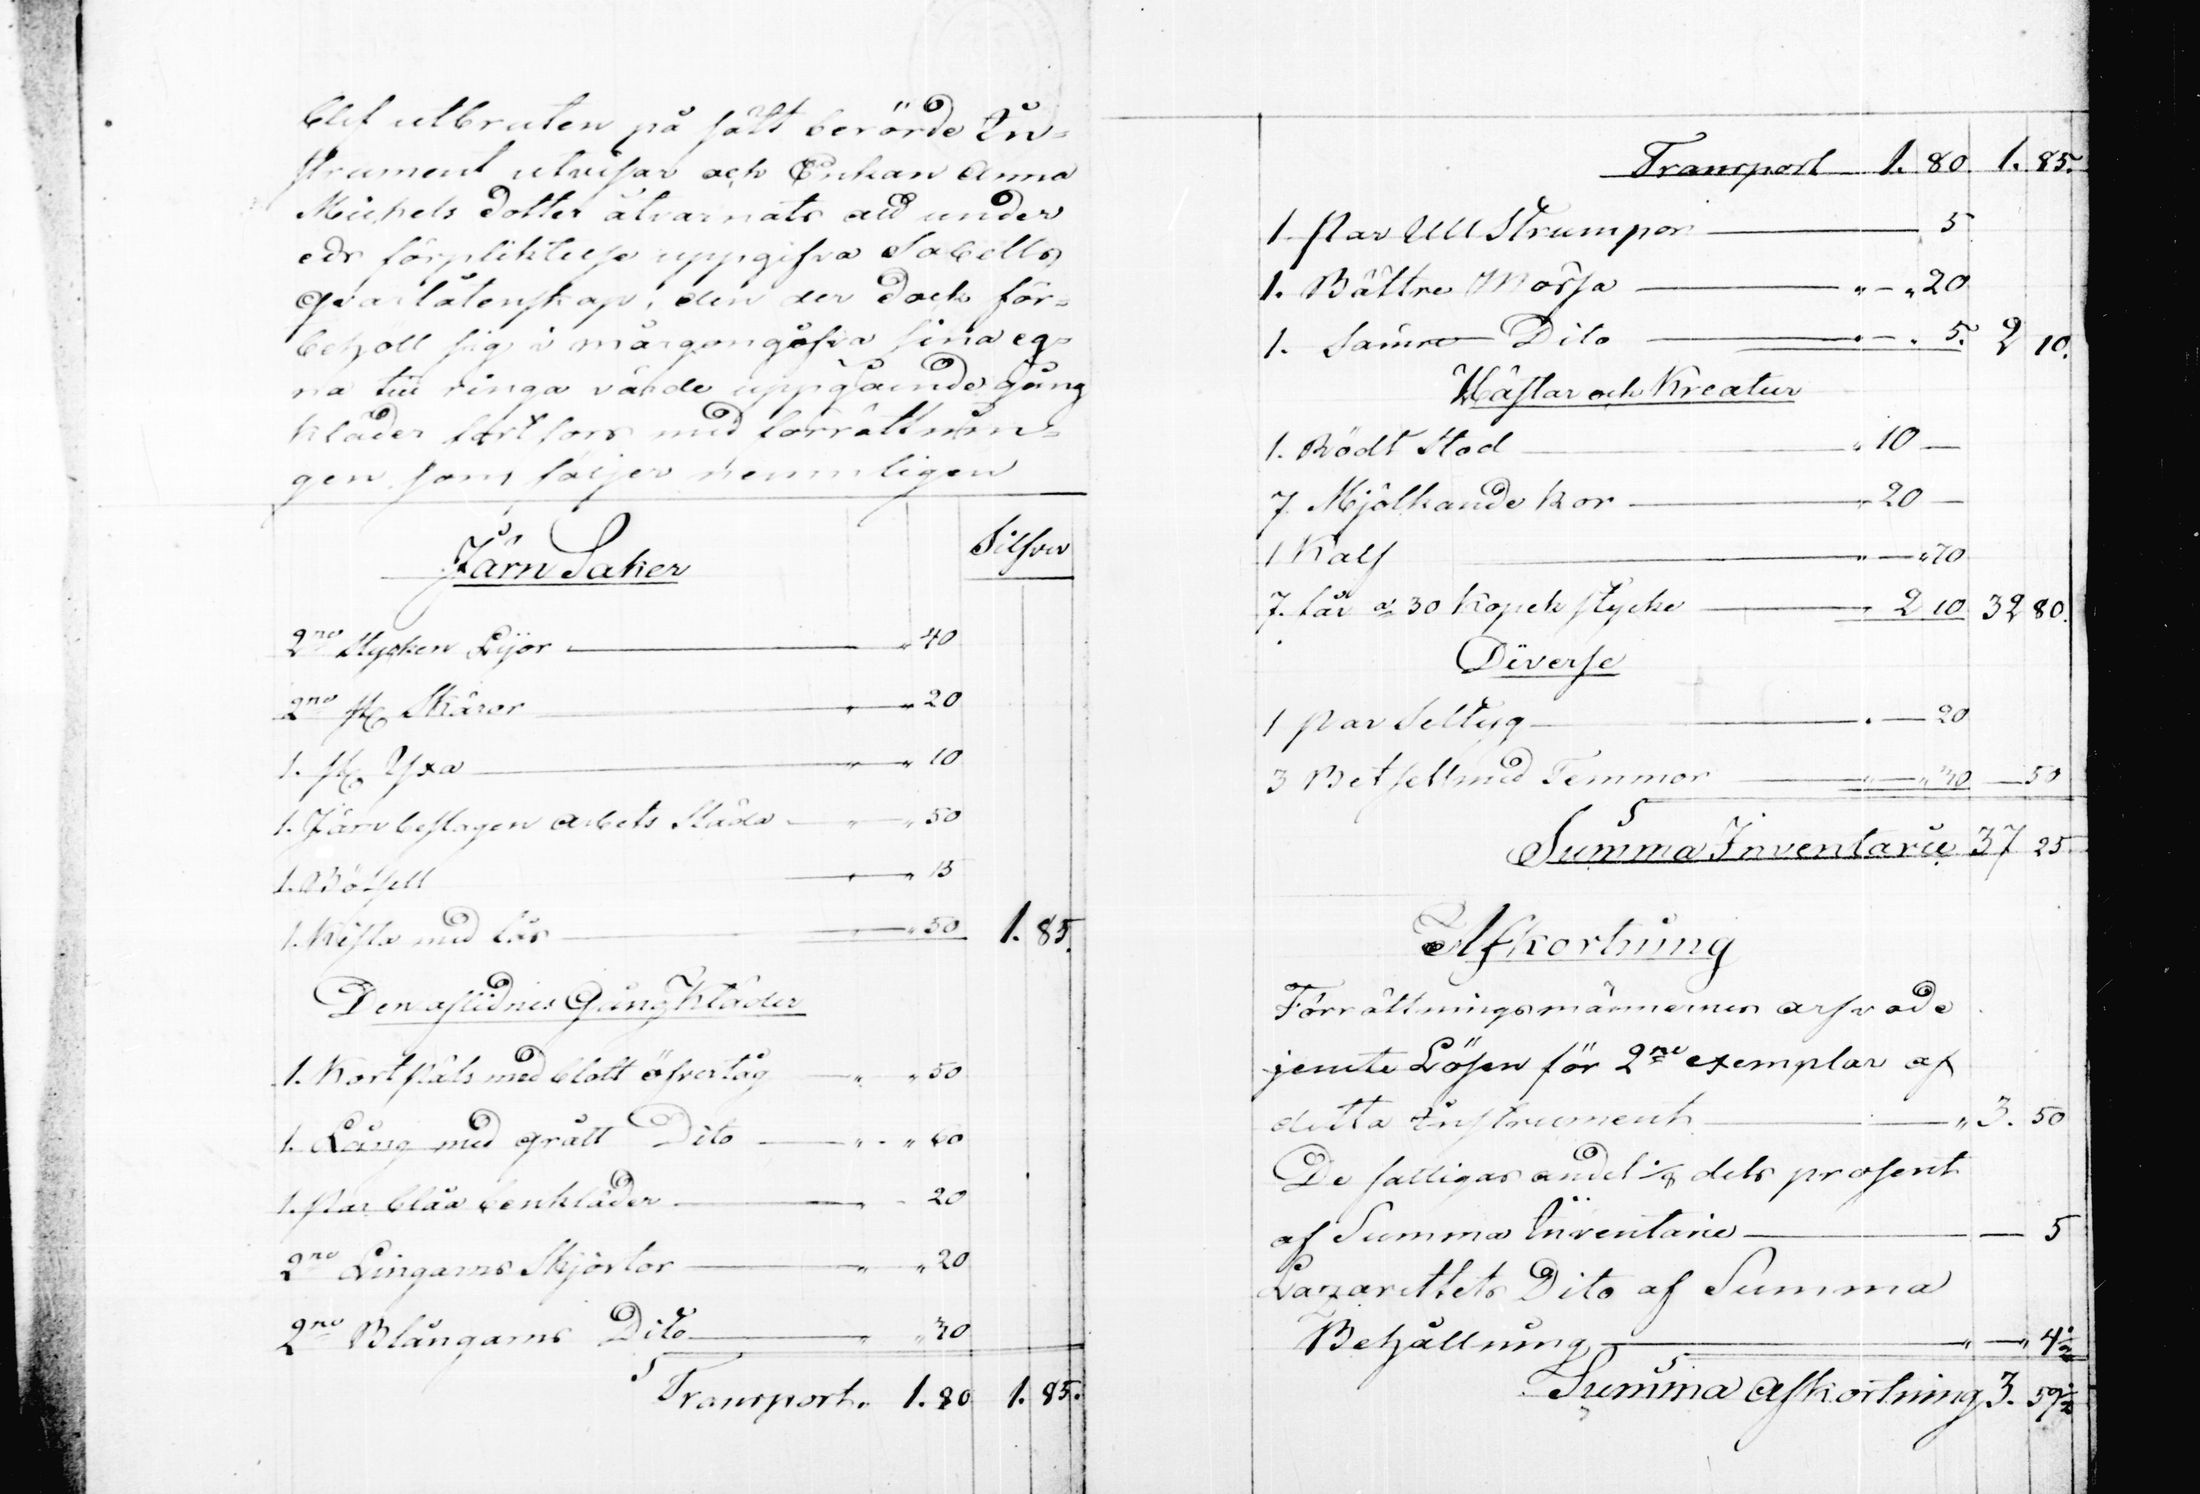 blef utbruten på sätt berörde In=
strument utvisar och Enkan Anna
Michels dotter åtvarnats att under
eds förpliktelse uppgifva Sabells
qvarlåtenskap, den der dock för=
behöll sig i mårgongåfva sina eg=
na till ringa värde uppgående gång
kläder fortfors med förrättnin=
gen som följer nemnligen
Järn Saker
Silfver
2no Stycken Lijor " 40
2no st Skäror " " 20
1. st Yxa " " 10
1. Järn beslagen arbets Släda " " 50
1. Bössell " " 15
1. Kista med lås " " 50 1. 85.
Den aflidnes Gång Kläder
1. Kort päls med blått öfvertåg " " 50
1. Lång med grått Dito " " 60
1. Par blåa benkläder " 20
2no Lingarns Skjortor " " 20
2no Blångarns Dito " " 30
Transport. 1. 80 1. 85.
Transport 1. 80. 1. 85.
1 Par Ull Strumpor 5
1. Bättre Mössa " " 20
1. Sämre Dito " " 5. 2 10.
Hästar och Kreatur
1. Rödt Stod " 10 —
7 Mjölkande Kor " 20 —
1 Kalf " — " 70
7. får a 30 Kopek stycke " 2 10 32 80.
Diverse
1 Par Seltyg " — 20
3 Betsell med Temmor " — " 30 — 50
Summa Inventarie 37 25
Afkortning
Förrättningsmännernes arfvode
jemte Lösen för 2ne exemplar af
detta instrument " 3. 50
De fattigas andel 1/8 dels prosent
af Summa Inventarie — 5
Lazarettets Dito af Summa
Behållning " — " 4 1/2
Summa afkortning 3. 59 1/2